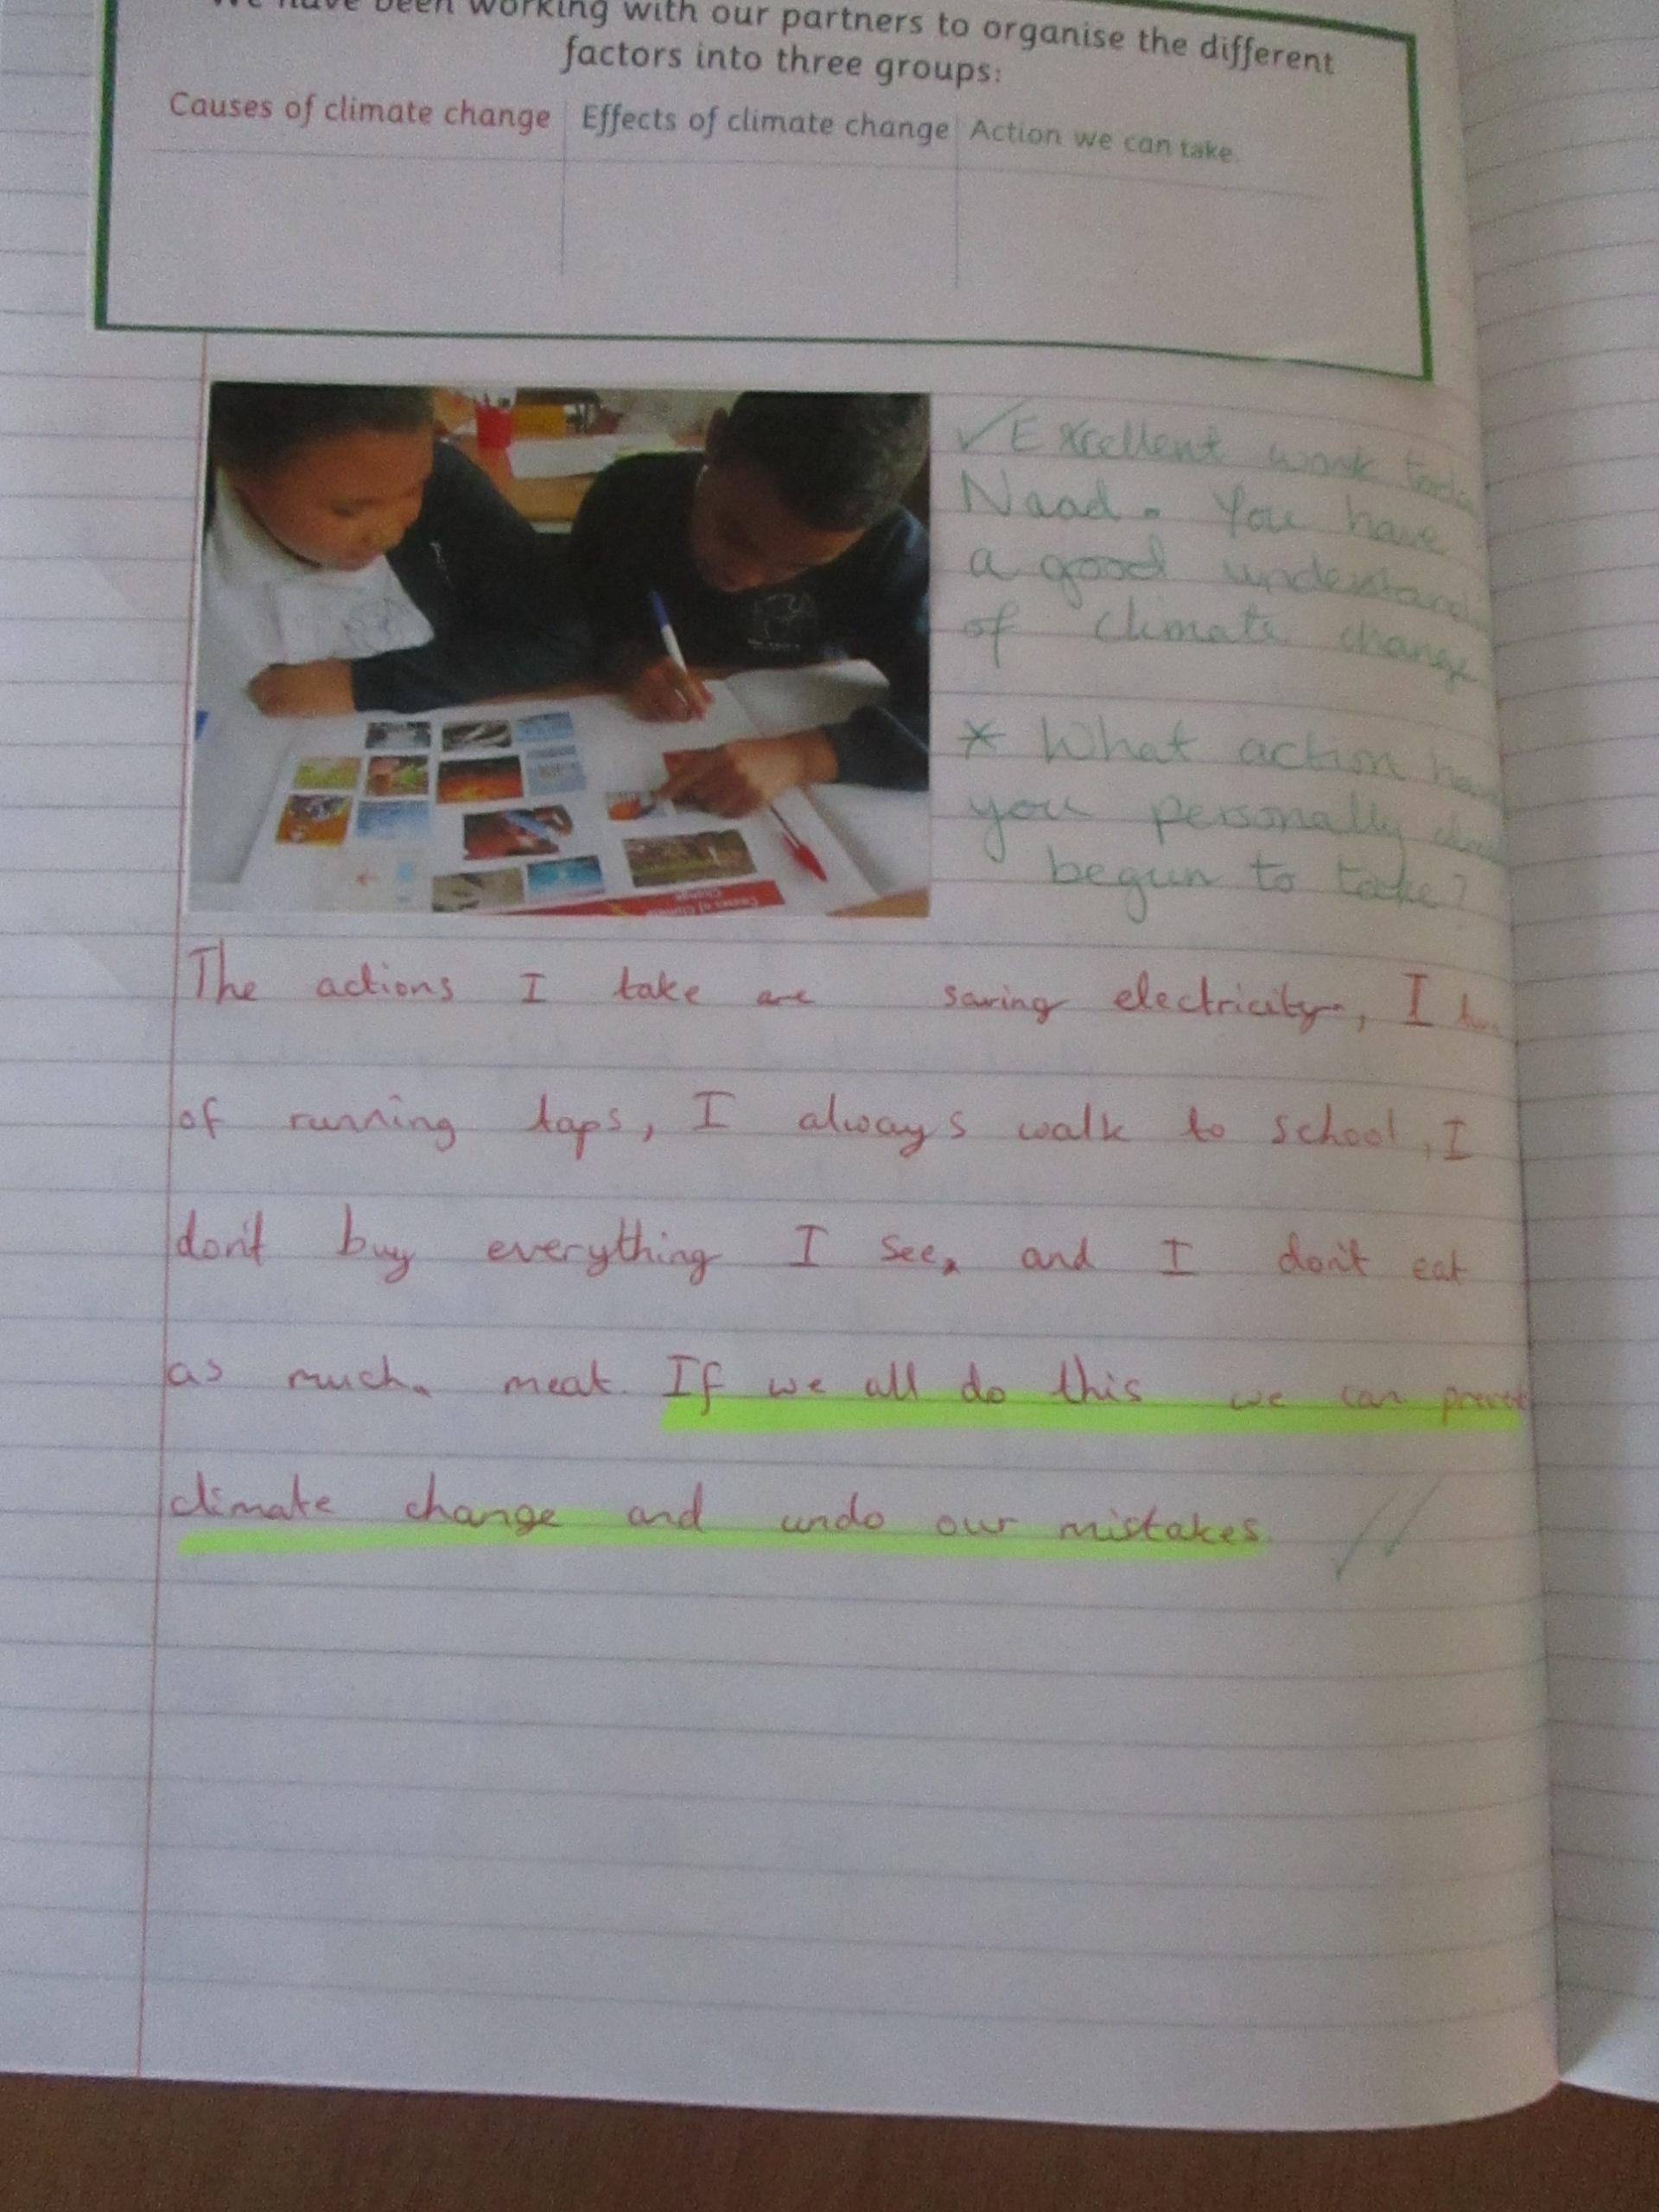 We have been working with our partners to organise the different
factors into three groups:
Causes of climate change Effects of climate change Action we can take.
✓ Excellent work
Naad. You have
a good
of climate change
* What action
you personally
begun to take?
Causes of Climate
Change
The actions I take are saving electricity, I
of running taps, I always walk to school, I
don't buy everything I see, and I don't eat
as much meat. If we all do this we can
climate change and undo our mistakes